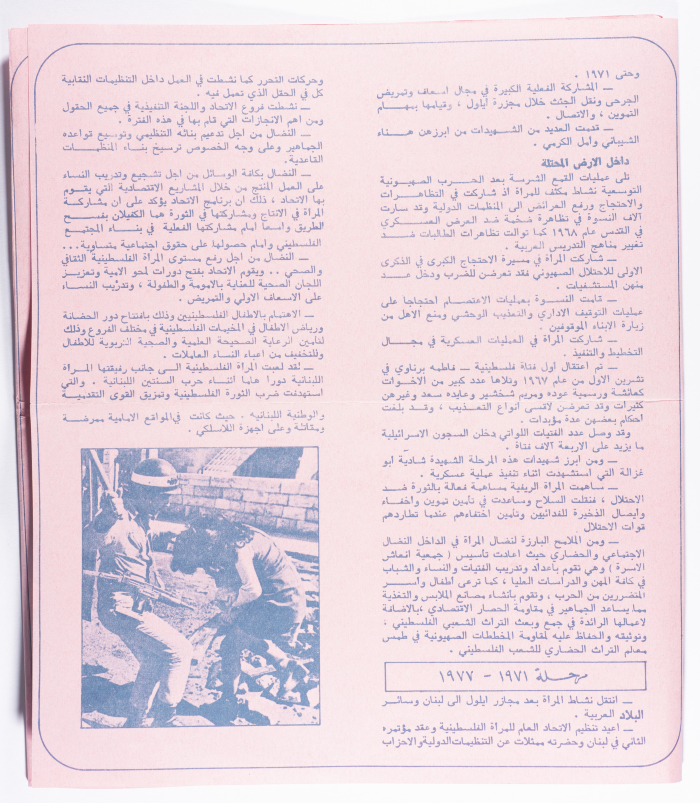 وحتى ١٩٧١ .
— المشاركة الفعلية الكبيرة في مجال اسعاف وتمريض
الجرحى ونقل الجثث خلال مجزرة أيلول ، وقيامها بمهام
التموين ، والاتصال .
— قدمت العديد من الشهيدات من ابرزهن هناء
الشيباني وأمل الكرمي .
داخل الارض المحتلة
تلى عمليات القمع الشرسة بعد الحرب الصهيونية
التوسعية نشاط مكثف للمرأة اذ شاركت في التظاهرات
والاحتجاج ورفع العرائض الى المنظمات الدولية وقد سارت
آلاف النسوة في تظاهرة ضخمة ضد العرض العسكري
في القدس عام ١٩٦٨ كما توالت تظاهرات الطالبات ضد
تغيير مناهج التدريس العربية .
— شاركت المرأة في مسيرة الاحتجاج الكبرى في الذكرى
الاولى للاحتلال الصهيوني فقد تعرضن للضرب ودخل عدد
منهن المستشفيات .
— قامت النسوة بعمليات الاعتصام احتجاجا على
عمليات التوقيف الاداري والتعذيب الوحشي ومنع الاهل من
زيارة الابناء الموقوفين .
— شاركت المرأة في العمليات العسكرية في مجال
التخطيط والتنفيذ .
— تم اعتقال أول فتاة فلسطينية — فاطمه برناوي في
تشرين الاول من عام ١٩٦٧ وتلاها عدد كبير من الاخوات
كعائشة ورسمية عوده ومريم شخشير وعايده سعد وغيرهن
كثيرات وقد تعرضن لاقسى أنواع التعذيب ، وقد بلغت
أحكام بعضهن عدة مؤبدات .
وقد وصل عدد الفتيات اللواتي دخلن السجون الاسرائيلية
ما يزيد على الاربعة آلاف فتاة .
— ومن ابرز شهيدات هذه المرحلة الشهيدة شادية أبو
غزالة التي استشهدت اثناء تنفيذ عملية عسكرية .
— ساهمت المرأة الريفية مساهمة فعالة بالثورة ضد
الاحتلال ، فنقلت السلاح وساعدت في تأمين تموين وأخفاء
وأيصال الذخيرة للفدائيين وتأمين اختفاءهم عندما تطاردهم
قوات الاحتلال
— ومن الملامح البارزة لنضال المرأة في الداخل النضال
الاجتماعي والحضاري حيث اعادت تأسيس ( جمعية انعاش
الاسرة ) وهي تقوم بأعداد وتدريب الفتيات والنساء والشباب
في كافة المهن والدراسات العليا ، كما ترعى أطفال وأسر
المتضررين من الحرب ، وتقوم بأنشاء مصانع الملابس والتغذية
مما يساعد الجماهير في مقاومة الحصار الاقتصادي ،بالاضافة
لاعمالها الرائدة في جمع وبعث التراث الشعبي الفلسطيني ،
وتوثيقه والحفاظ عليه لمقاومة المخططات الصهيونية في طمس
معالم التراث الحضاري للشعب الفلسطيني .
مرحلة ١٩٧١ - ١٩٧٧
— انتقل نشاط المرأة بعد مجازر أيلول الى لبنان وسائر
البلاد العربية .
— اعيد تنظيم الاتحاد العام للمرأة الفلسطينية وعقد مؤتمره
الثاني في لبنان وحضرته ممثلات عن التنظيمات الدولية والاحزاب
وحركات التحرر كما نشطت في العمل داخل التنظيمات النقابية
كل في الحقل الذي تعمل فيه .
— نشطت فروع الاتحاد واللجنة التنفيذية في جميع الحقول
ومن أهم الانجازات التي قام بها في هذه الفترة .
— النضال من اجل تدعيم بنائه التنظيمي وتوسيع قواعده
الجماهير وعلى وجه الخصوص ترسيخ بناء المنظمات
القاعدية.
— النضال بكافة الوسائل من اجل تشجيع وتدريب النساء
على العمل المنتج من خلال المشاريع الاقتصادية التي يقوم
بها الاتحاد ، ذلك ان برنامج الاتحاد يؤكد على ان مشاركة
المرأة في الانتاج ومشاركتها في الثورة هما الكفيلان بفسح
الطريق واسعا أمام مشاركتها الفعلية في بناء المجتمع
الفلسطيني وأمام حصولها على حقوق اجتماعية متساوية...
— النضال من اجل رفع مستوى المرأة الفلسطينية الثقافي
والصحي .. ويقوم الاتحاد بفتح دورات لمحو الامية وتعزيز
اللجان الصحية للعناية بالامومة والطفولة ، وتدريب النساء
على الاسعاف الاولي والتمريض .
— الاهتمام بالاطفال الفلسطينيين وذلك بافتتاح دور الحضانة
ورياض الاطفال في المخيمات الفلسطينية في مختلف الفروع وذلك
لتأمين الرعاية الصحيحة العلمية والصحية التربوية للاطفال
وللتخفيف من اعباء النساء العاملات .
— لقد لعبت المرأة الفلسطينية الى جانب رفيقتها المرأة
اللبنانية دورا هاما أثناء حرب السنتين اللبنانية . والتي
استهدفت ضرب الثورة الفلسطينية وتمزيق القوى التقدمية
والوطنية اللبنانيه . حيث كانت في المواقع الامامية ممرضة
ومقاتلة وعلى اجهزة اللاسلكي .